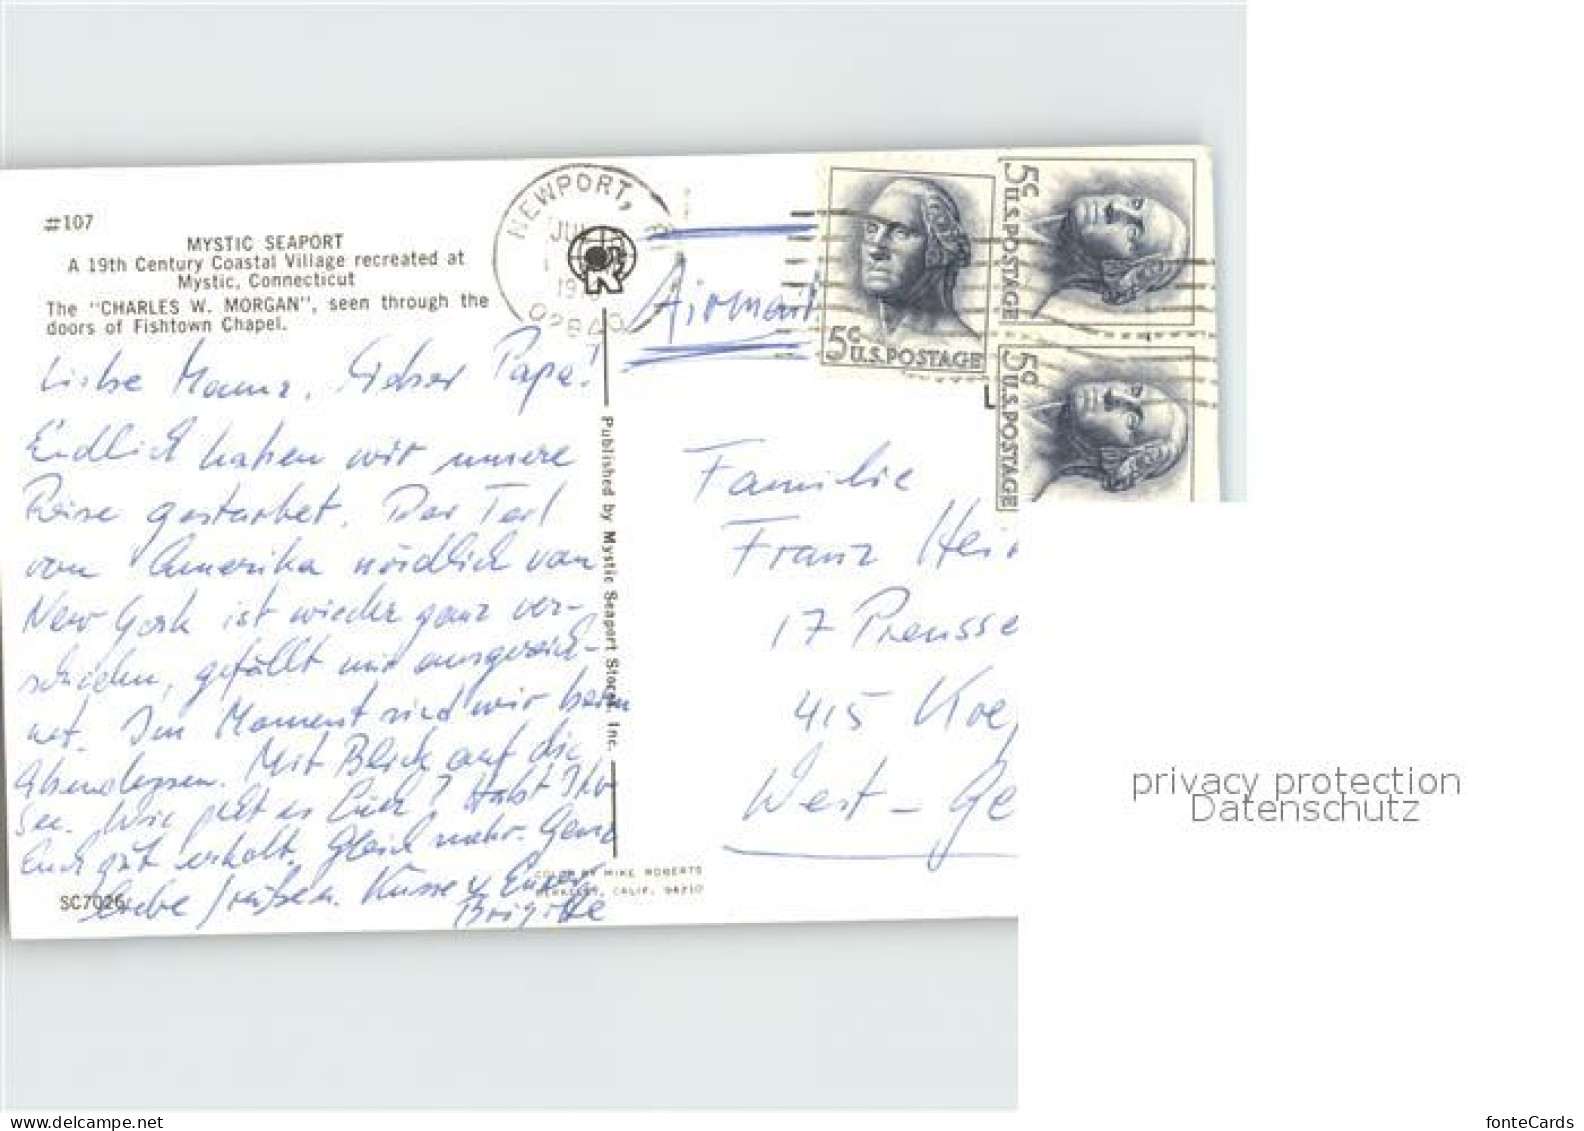 #107
MYSTIC SEAPORT
A 19th Century Coastal Village recreated at
Mystic, Connecticut
The "CHARLES W. MORGAN", seen through the
doors of Fishtown Chapel.
NEWPORT, R
JU
19
02840
Airmail
5c U.S.POSTAGE
5c U.S.POSTAGE
5c U.S.POSTAGE
Liebe Mama, lieber Papa!
Endlich haben wir unsere
Reise gestartet. Der Teil
von Amerika nördlich von
New York ist wieder ganz ver-
schieden, gefällt mir ausgezeich-
net. Im Moment sind wir beim
Abendessen. Mit Blick auf die
See. Wie geht es Euch? Habt Ihr
Euch gut erholt. Gleich mehr. Ganz
liebe Grüße u. Küsse Eure
Brigitte
Published by Mystic Seaport Stores, Inc.
COLOR BY MIKE ROBERTS
BERKELEY, CALIF. 94710
SC7026
Familie
Franz Hei
17 Preusse
415
West-Ge
privacy protection
Datenschutz
www.delcampe.net
fonteCards